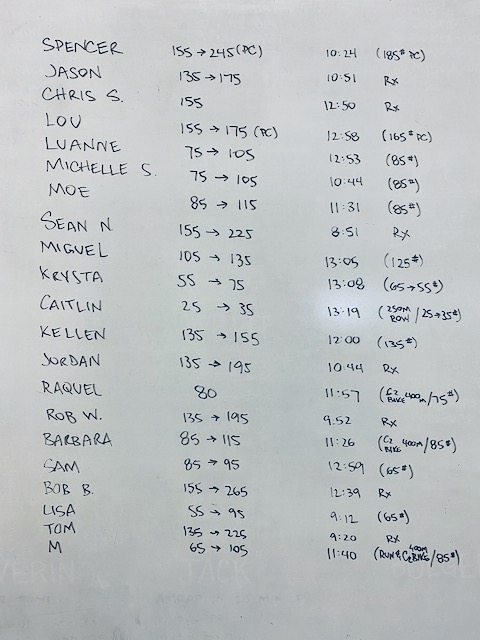 SPENCER 155 → 245 (PC) 10:24 (185# PC)
JASON 135 → 175 10:51 Rx
CHRIS S. 155 12:50 Rx
LOU 155 → 175 (PC) 12:58 (165# PC)
LUANNE 75 → 105 12:53 (85#)
MICHELLE S. 75 → 105 10:44 (85#)
MOE 85 → 115 11:31 (85#)
SEAN N 155 → 225 8:51 Rx
MIGUEL 105 → 135 13:05 (125#)
KRYSTA 55 → 75 13:08 (65→55#)
CAITLIN 25 → 35 13:19 (250M ROW / 25→35#)
KELLEN 135 → 155 12:00 (135#)
JORDAN 135 → 195 10:44 Rx
RAQUEL 80 11:57 (C2 BIKE 400M/75#)
ROB W. 135 → 195 9:52 Rx
BARBARA 85 → 115 11:26 (C2 BIKE 400M/85#)
SAM 85 → 95 12:59 (65#)
BOB B. 155 → 265 12:39 Rx
LISA 55 → 95 9:12 (65#)
TOM 135 → 225 9:20 Rx
M 65 → 105 11:40 (RUN & C2 BIKE 400M/85#)
JACK